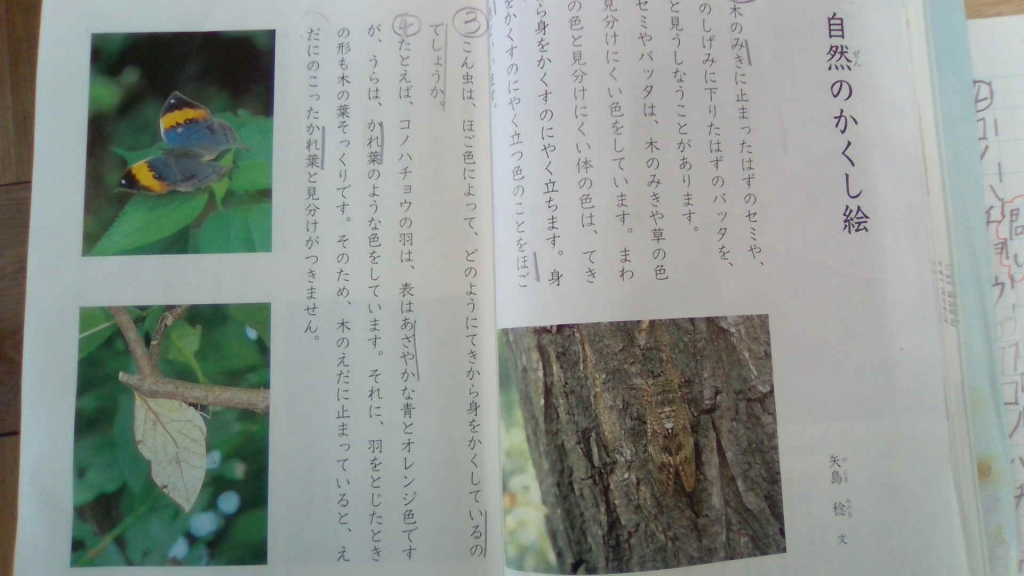 自然のかくし絵
矢島 稔 文
木のみきに止まったはずのセミや、
のしげみに下りたはずのバッタを、
と見うしなうことがあります。
セミやバッタは、木のみきや草の色
見分けにくい色をしています。まわ
の色と見分けにくい体の色は、てき
ら身をかくすのにやく立ちます。身
をかくすのにやく立つ色のことをほご
います。
③こん虫は、ほご色によって、どのようにてきから身をかくしているの
でしょうか。
④たとえば、コノハチョウの羽は、表はあざやかな青とオレンジ色です
が、うらは、かれ葉のような色をしています。それに、羽をとじたとき
の形も木の葉そっくりです。そのため、木のえだに止まっていると、え
だにのこったかれ葉と見分けがつきません。